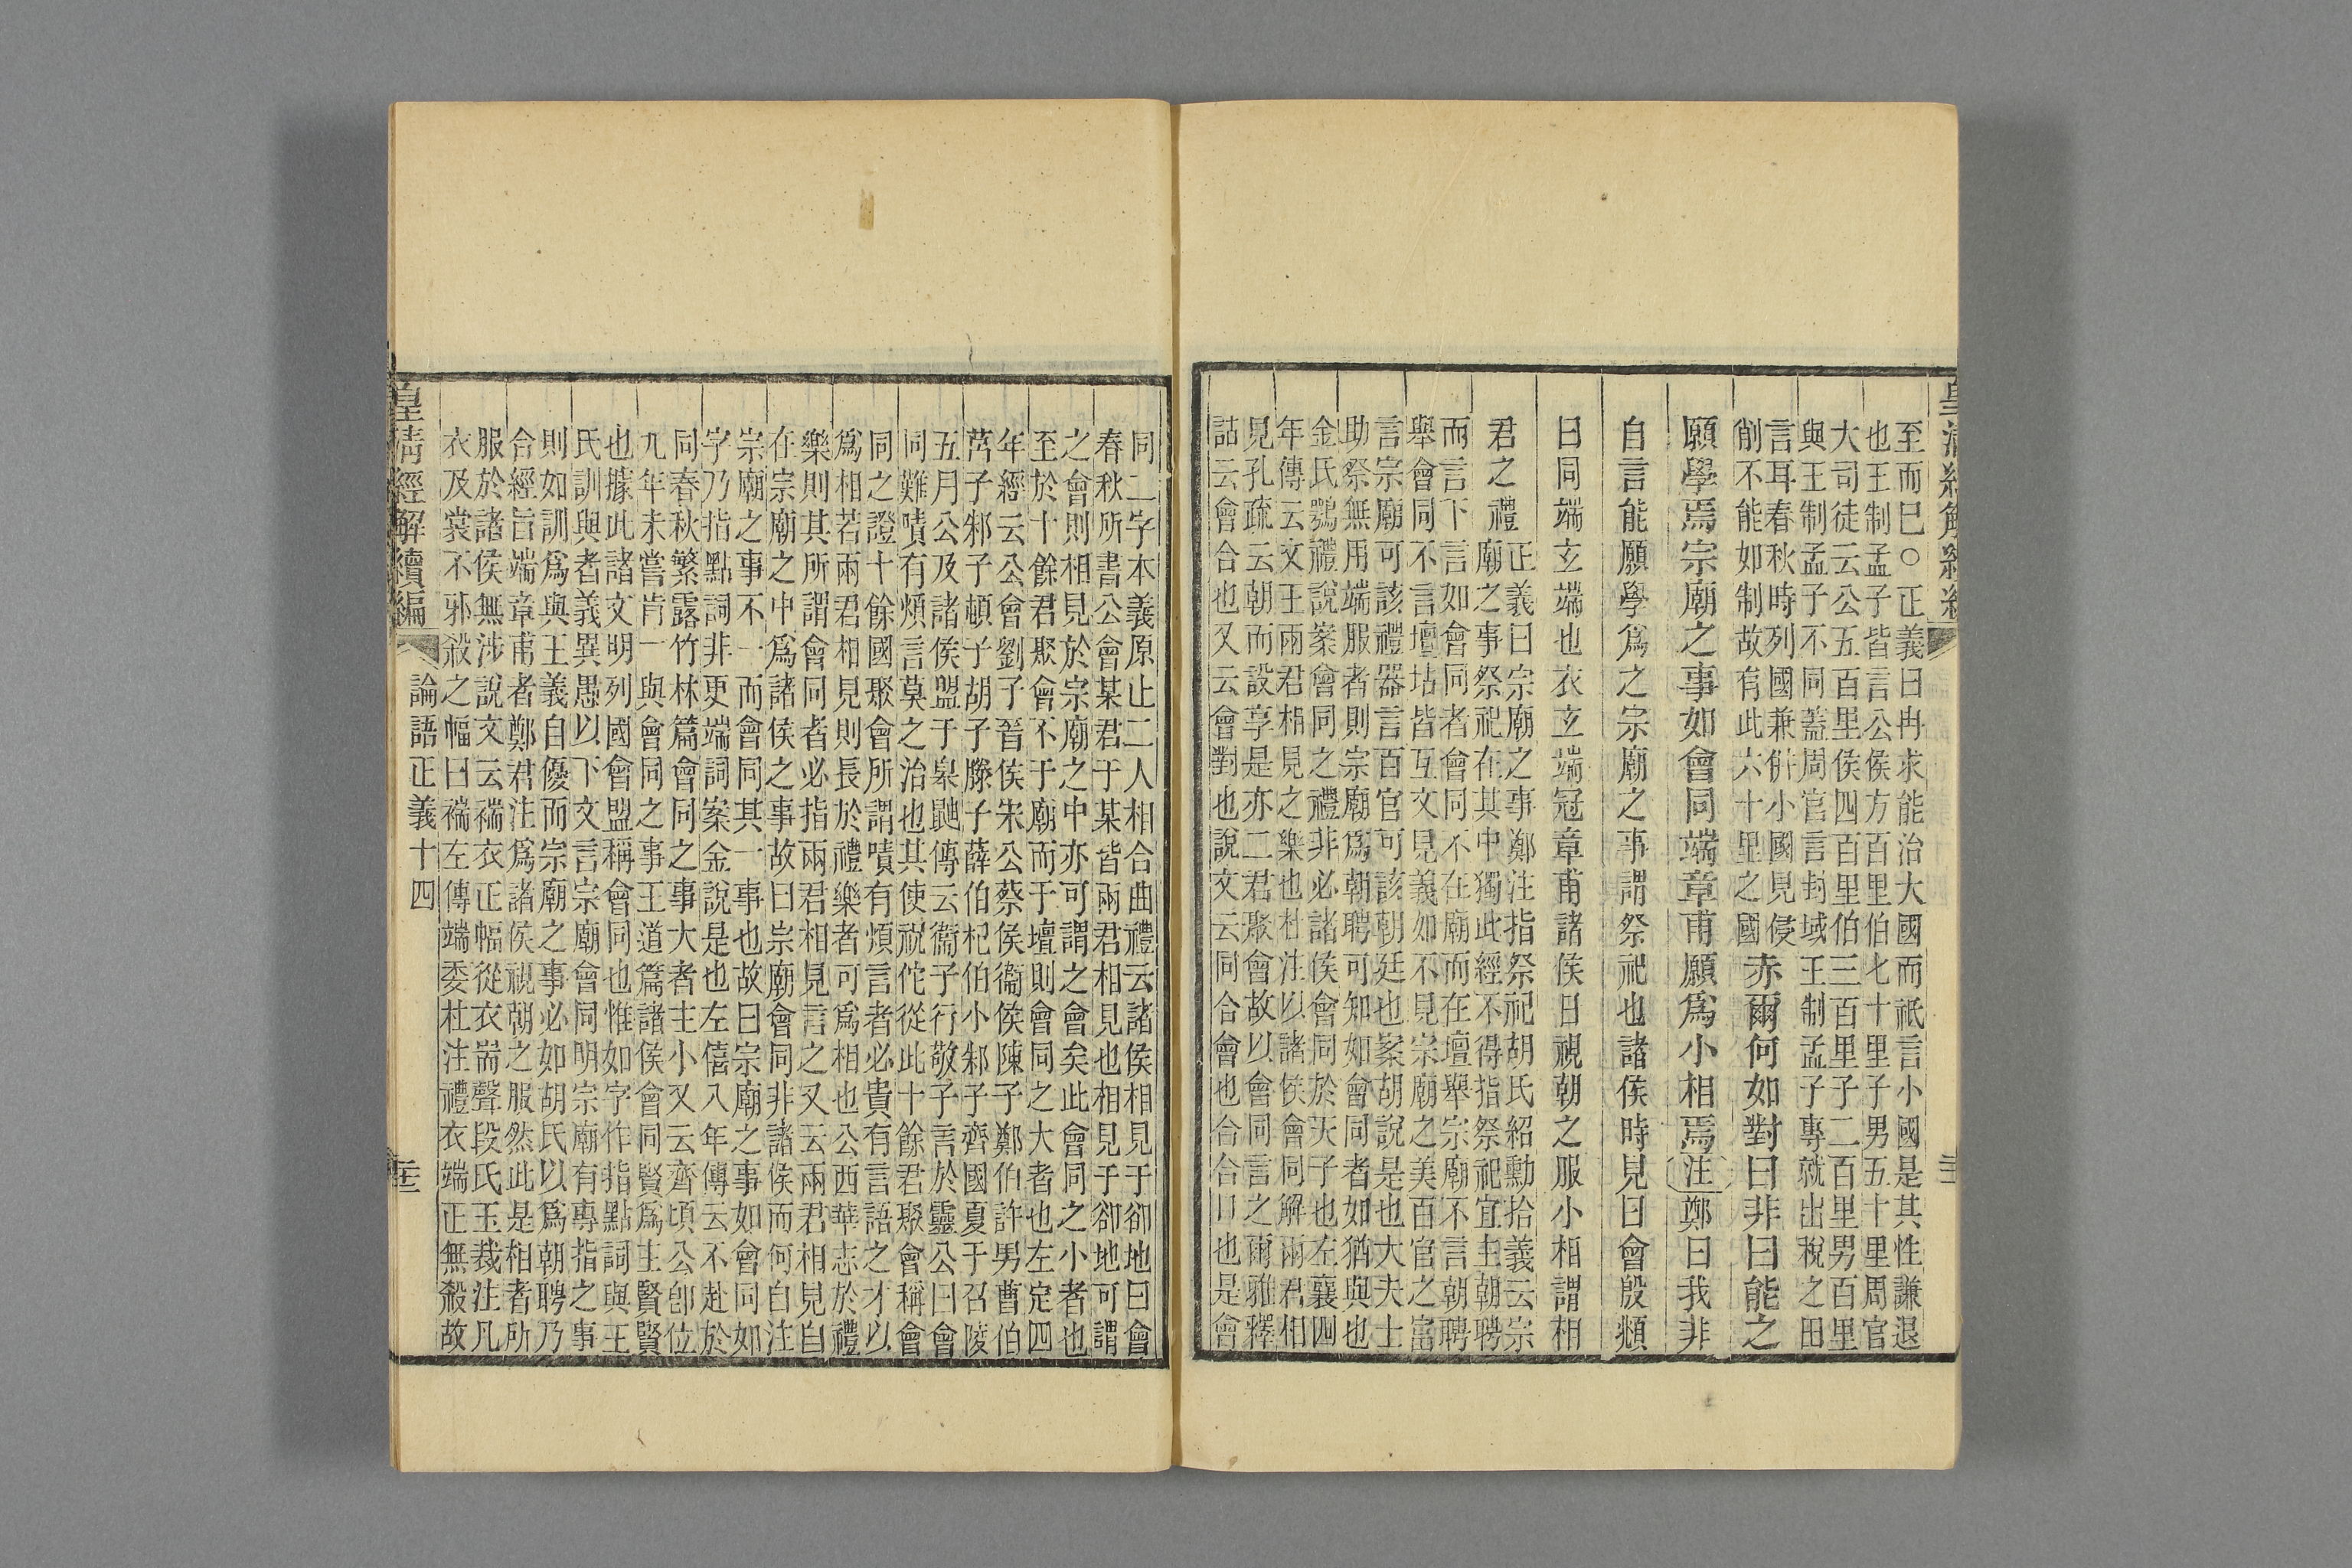 皇清經解續編
至而巳○正義曰冉求能治大國而祇言小國是其性謙退
也王制孟子皆言公侯方百里伯七十里子男五十里周官
大司徒云公五百里侯四百里伯三百里子二百里男百里
與王制孟子不同蓋周官言封域王制孟子專就出稅之田
言耳春秋時列國兼併小國見侵
削不能如制故有此六十里之國
赤爾何如對曰非曰能之
願學焉宗廟之事如會同端章甫願爲小相焉注鄭曰我非
自言能願學爲之宗廟之事謂祭祀也諸侯時見曰會殷頫
曰同端玄端也衣玄端冠章甫諸侯日視朝之服小相謂相
君之禮
正義曰宗廟之事鄭注指祭祀胡氏紹勳拾義云宗
廟之事祭祀在其中獨此經不得指祭祀宜主朝聘
而言下言如會同者會同不在廟而在壇舉宗廟不言朝聘
舉會同不言壇坫皆互文見義如不見宗廟之美百官之富
言宗廟可該禮器言百官可該朝廷也案胡說是也大夫士
助祭無用端服者則宗廟爲朝聘可知如會同者如猶與也
金氏鶚禮說案會同之禮非必諸侯會同於天子也左襄四
年傳云文王兩君相見之樂也杜注以諸侯會同解兩君相
見孔疏云朝而設享是亦二君聚會故以會同言之爾雅釋
詁云會合也又云會對也說文云同合會也合合口也是會
同二字本義原止二人相合曲禮云諸侯相見于卻地曰會
春秋所書公會某君于某皆兩君相見也相見于卻地可謂
之會則相見於宗廟之中亦可謂之會矣此會同之小者也
至於十餘君聚會不于廟而于壇則會同之大者也左定四
年經云公會劉子晉侯宋公蔡侯衞侯陳子鄭伯許男曹伯
莒子邾子頓子胡子滕子薛伯杞伯小邾子齊國夏于召陵
五月公及諸侯盟于皋鼬傳云衞子行敬子言於靈公曰會
同難嘖有煩言莫之治也其使祝佗從此十餘君聚會稱會
同之證十餘國聚會所謂嘖有煩言者必貴有言語之才以
爲相若兩君相見則長於禮樂者可爲相也公西華志於禮
樂則其所謂會同者必指兩君相見言之又云兩君相見自
在宗廟之中爲諸侯之事故曰宗廟會同非諸侯而何自注
宗廟之事不一而會同其一事也故曰宗廟之事如會同如
字乃指點詞非更端詞案金說是也左僖八年傳云不赴於
同春秋繁露竹林篇會同之事大者主小又云齊頃公卽位
九年未嘗肯一與會同之事王道篇諸侯會同賢爲主賢賢
也據此諸文明列國會盟稱會同也惟如字作指點詞與王
氏訓與者義異愚以下文言宗廟會同明宗廟有專指之事
則如訓爲與王義自優而宗廟之事必如胡氏以爲朝聘乃
合經旨端章甫者鄭君注爲諸侯視朝之服然此是相者所
服於諸侯無涉說文云褍衣正幅從衣耑聲段氏玉裁注凡
衣及裳不邪殺之幅曰褍左傳端委杜注禮衣端正無殺故
皇清經解續編
論語正義十四